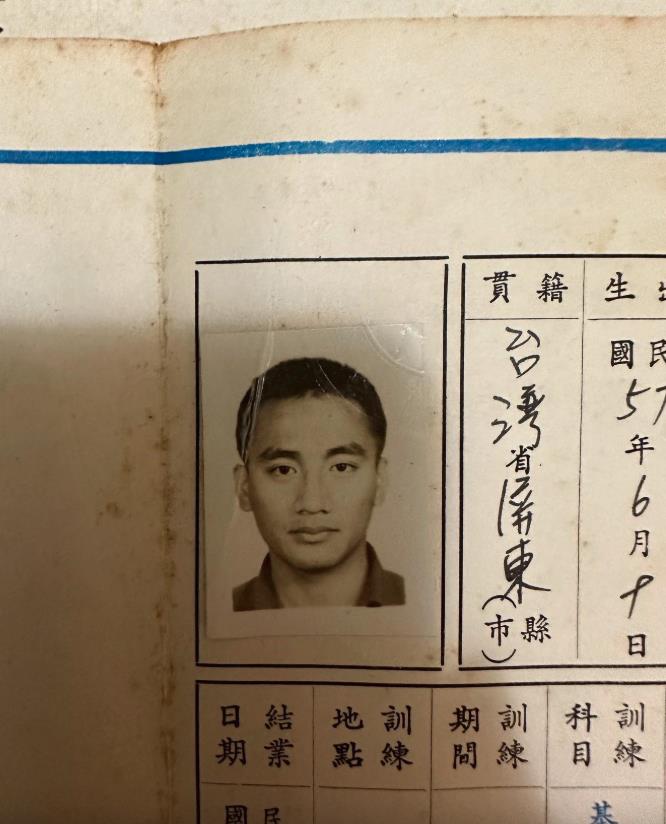 生
籍貫
國民
57
年
6
月
日
台灣省屏東縣(市)
訓練科目
訓練期間
訓練地點
結業日期
基
國民